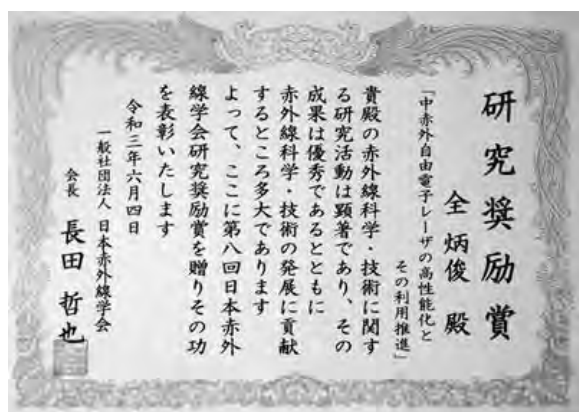 研究奨励賞
全 炳俊 殿
「中赤外自由電子レーザの高性能化と
その利用推進」
貴殿の赤外線科学・技術に関す
る研究活動は顕著であり、その
成果は優秀であるとともに
赤外線科学・技術の発展に貢献
するところ多大であります
よって、ここに第八回日本赤外
線学会研究奨励賞を贈りその功
を表彰いたします
令和三年六月四日
一般社団法人 日本赤外線学会
会長 長田 哲也